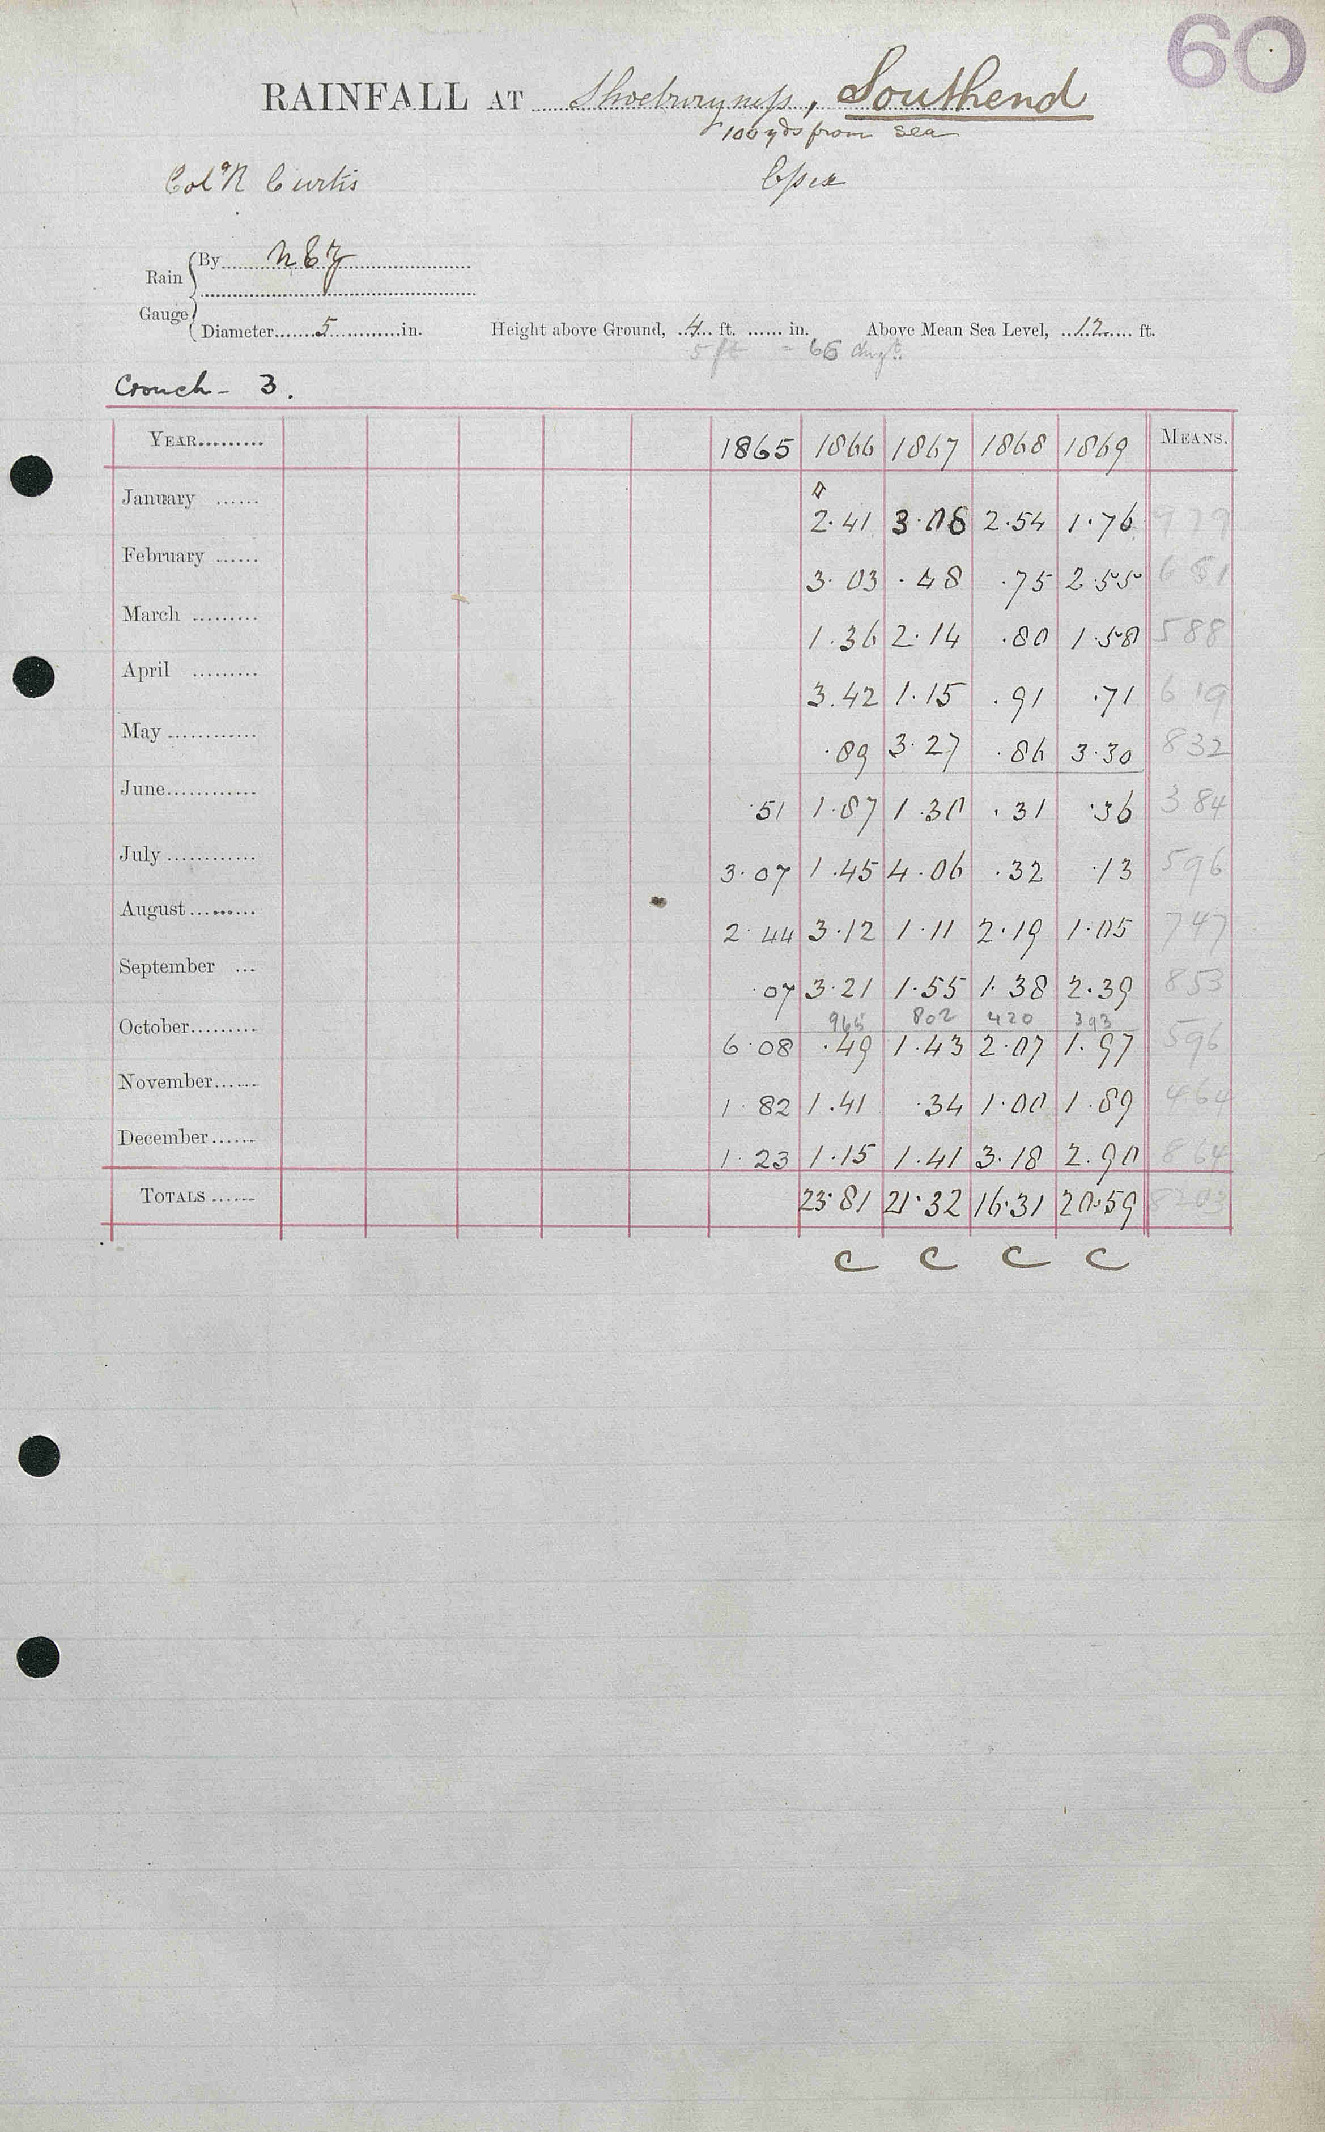 60
RAINFALL AT Shoeburyness, Southend
100 yds from sea
Col. N Curtis Essex
Rain Gauge By
Diameter 5 in. Height above Ground, 4 ft. in. Above Mean Sea Level, 12 ft.
5 ft = 66
Crouch - 3.
YEAR 1865 1866 1867 1868 1869 MEANS.
January 2.41 3.08 2.54 1.76 979
February 3.03 .48 .75 2.55 681
March 1.36 2.14 .80 1.50 588
April 3.42 1.15 .91 .71 619
May .89 3.27 .86 3.30 832
June .51 1.87 1.30 .31 .36 384
July 3.07 1.45 4.06 .32 .13 596
August 2.44 3.12 1.11 2.19 1.05 747
September .07 3.21 1.55 1.38 2.39 853
965 802 420 393
October 6.08 .49 1.43 2.07 1.97 596
November 1.82 1.41 .34 1.00 1.89 464
December 1.23 1.15 1.41 3.18 2.90 864
TOTALS 23.81 21.32 16.31 20.59 8203
C C C C